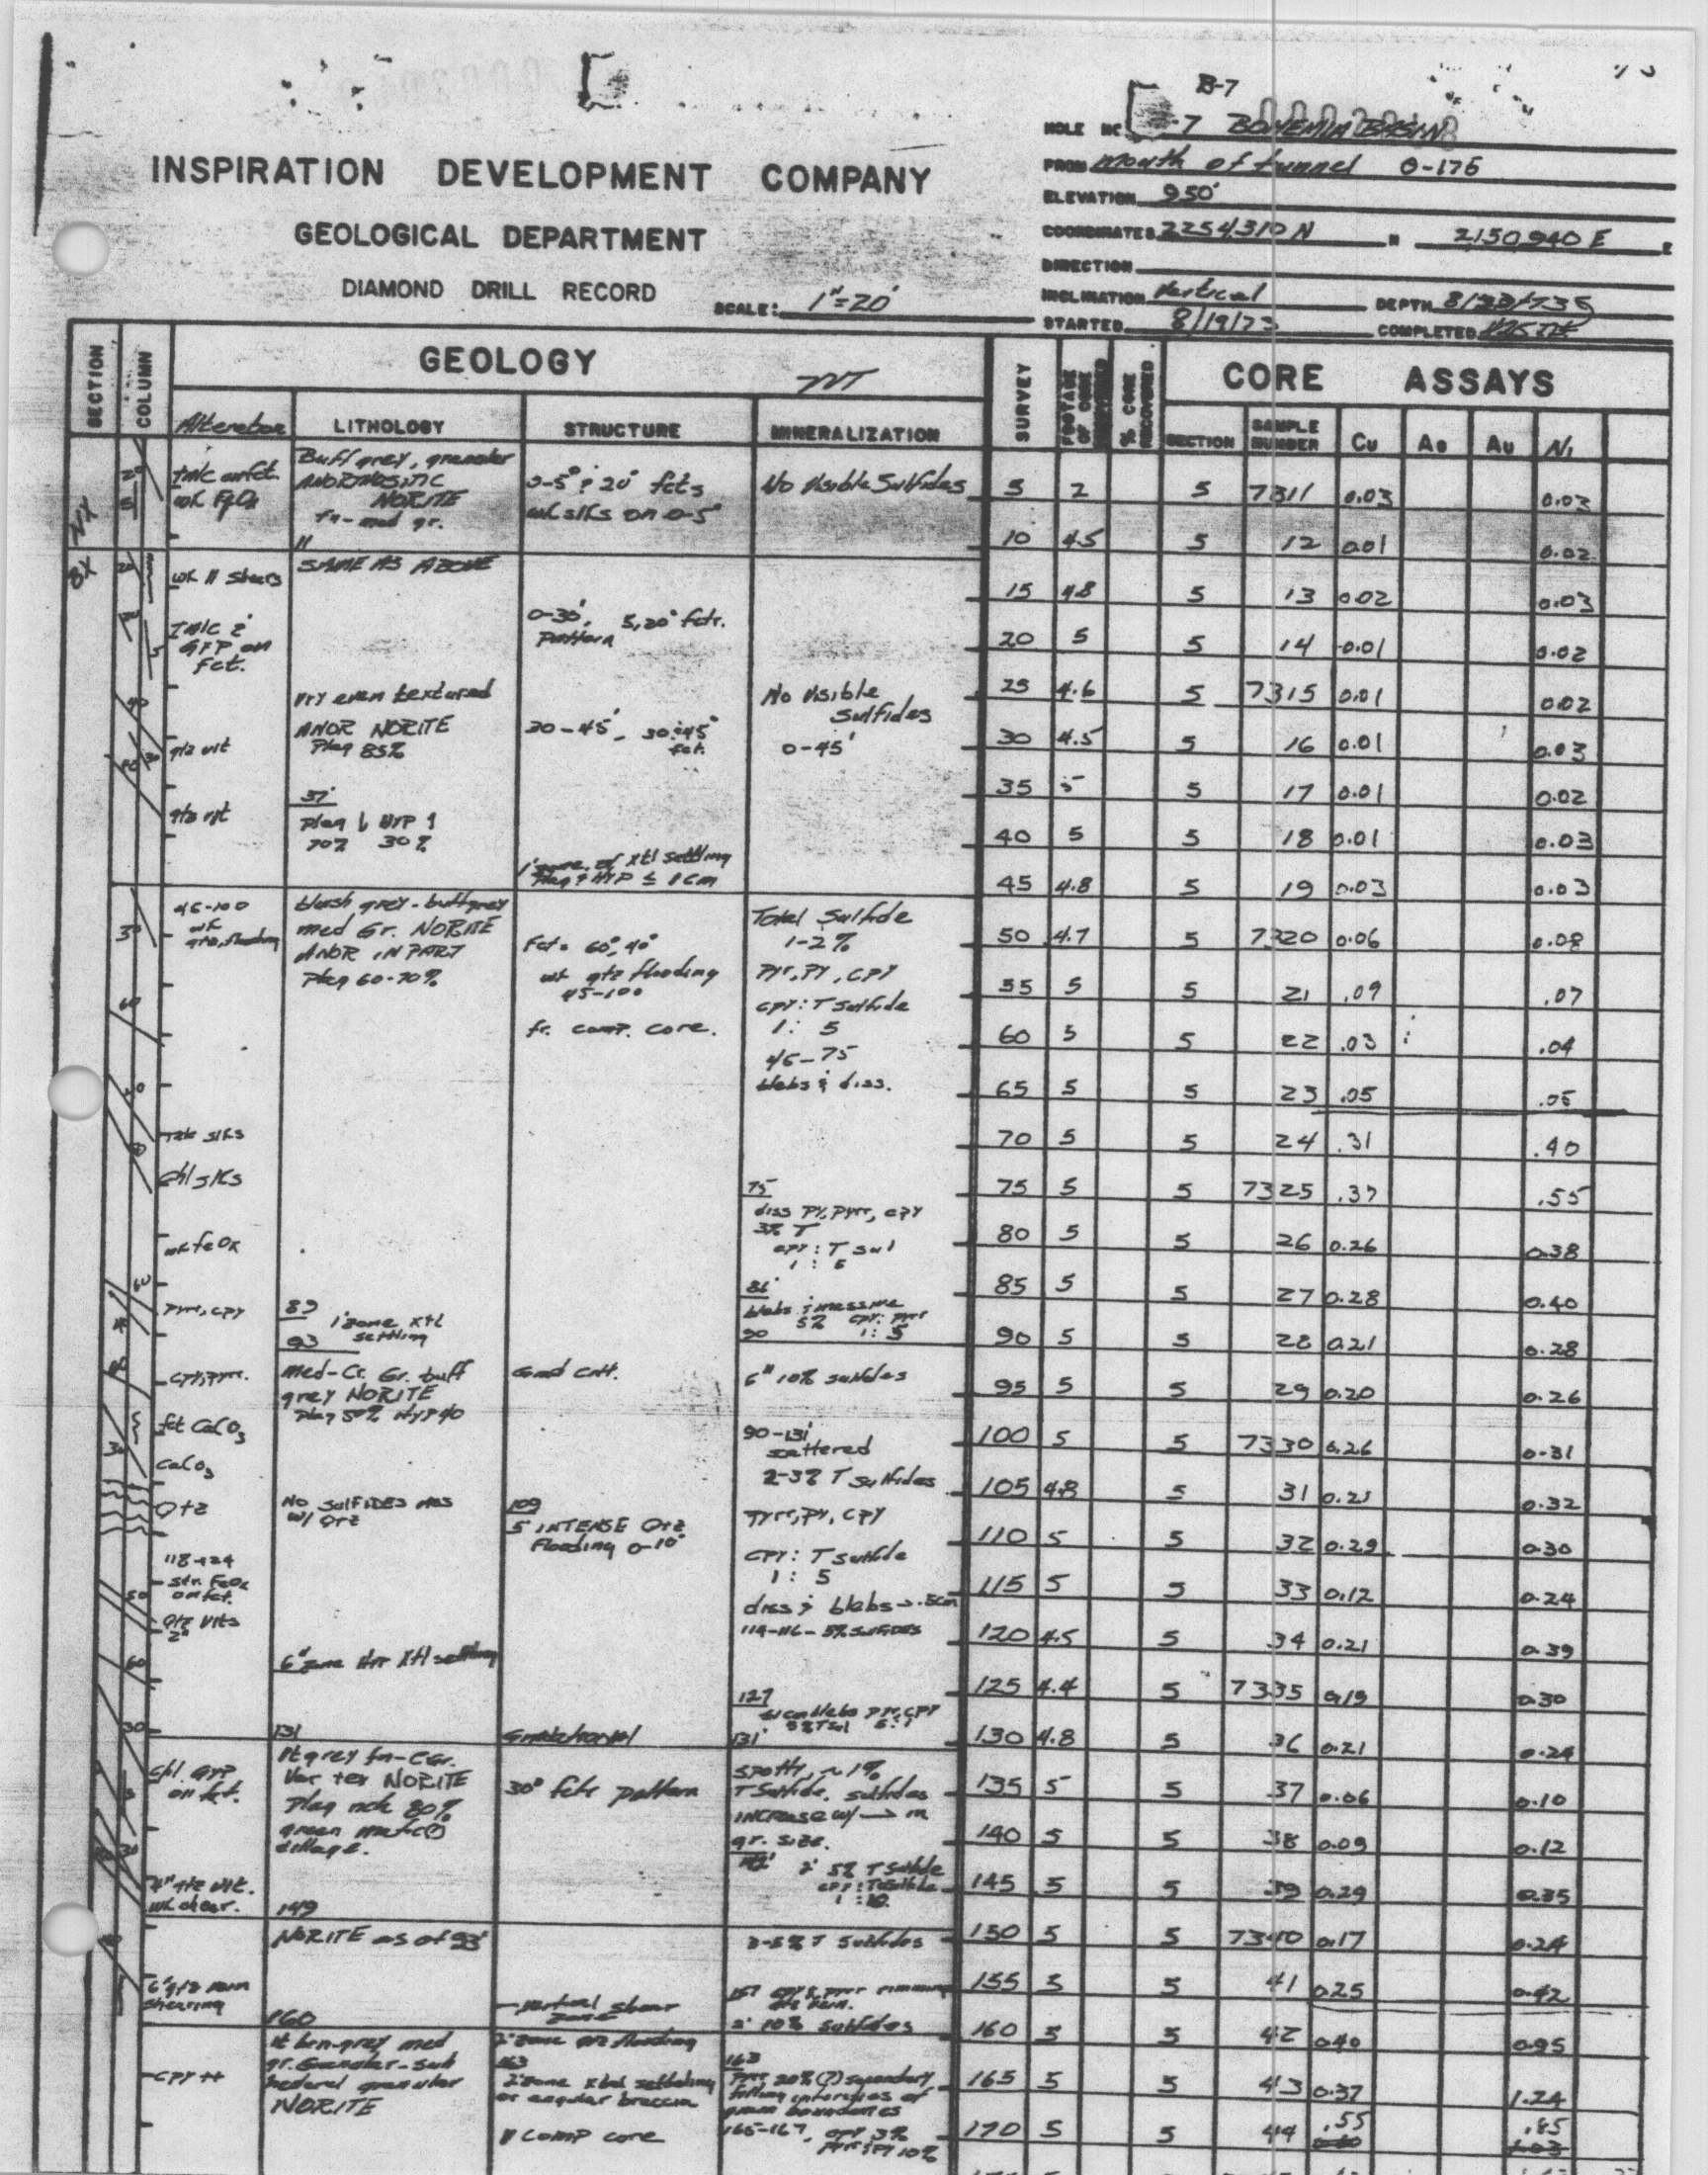 B-7
HOLE NO. -7 BOHEMIA BASIN
FROM Mouth of tunnel 0-175
ELEVATION 950'
COORDINATES 2254310 N N 2,150,940 E E
DIRECTION
INCLINATION Vertical DEPTH
STARTED 8/19/73 COMPLETED
INSPIRATION DEVELOPMENT COMPANY
GEOLOGICAL DEPARTMENT
DIAMOND DRILL RECORD SCALE: 1"=20'
SECTION COLUMN GEOLOGY SURVEY FOOTAGE OF CORE % CORE RECOVERED CORE ASSAYS
Alteration LITHOLOGY STRUCTURE MINERALIZATION SECTION SAMPLE NUMBER Cu Ag Au Ni
NX
Buff grey, granular
ANORTHOSITIC
NORITE
fn-med gr.
0-5° & 20° fcts
wk slks on 0-5°
No Visible Sulfides
5 2 5 7311 0.03 0.03
10 4.5 5 12 0.01 0.02
BX
wk || shears
SAME AS ABOVE
15 4.8 5 13 0.02 0.03
0-30', 5,20° fctr.
pattern
20 5 5 14 0.01 0.02
on
fct.
Vry even textured
No Visible
Sulfides
0-45'
25 4.6 5 7315 0.01 0.02
ANOR NORITE
Plag 85%
qtz vlt
30-45', 30 & 45°
fct.
30 4.5 5 16 0.01 0.03
35 5 5 17 0.01 0.02
qtz vlt
37'
Plag ↓ HYP ↑
70% 30%
40 5 5 18 0.01 0.03
1' zone of xtl settling
Plag & HYP ≤ 1cm
45 4.8 5 19 0.03 0.03
45-100
wk
qtz flooding
bluish grey-buff grey
med Gr. NORITE
ANOR IN PART
Plag 60-70%
Fct. 60°, 40°
wk qtz flooding
45-100
fr. comp. core.
Total Sulfide
1-2%
Pyr, PY, CPY
CPY: T Sulfide
1: 5
45-75
blebs & diss.
50 4.7 5 7320 0.06 0.08
55 5 5 21 .09 .07
60 5 5 22 .03 .04
65 5 5 23 .05 .05
Talc slks
70 5 5 24 .31 .40
Chl slks
75
diss PY, Pyrr, cpy
3% T
cpy: T sul
1 : 5
75 5 5 7325 .37 .55
wk feOx
80 5 5 26 0.26 0.38
Pyrr, cpy
89
1' zone xtl
settling
93
86'
blebs & massive
5% cpy: pyrr
90 1: 5
85 5 5 27 0.28 0.40
90 5 5 28 0.21 0.28
cpy, pyrr.
med-Cr. Gr. buff
grey NORITE
Plag 50% Hyp 40
Grad cntt.
6" 10% sulfides
95 5 5 29 0.20 0.26
fct CaCO3
90-131'
scattered
2-3% T Sulfides
100 5 5 7330 0.26 0.31
CaCO3
105 4.8 5 31 0.21 0.32
Qtz
No SULFIDES ASS
w/ Qtz
109
5' INTENSE Qtz
Flooding 0-10°
Pyrr, PY, CPY
CPY: T Sulfide
1: 5
110 5 5 32 0.29 0.30
118-124
str. FeOx
on fct.
diss & blebs → .5cm
115 5 5 33 0.12 0.24
Qtz Vlts
2"
114-116 - 5% SULFIDES
120 4.5 5 34 0.21 0.39
6" zone Hyp Xtl settling
125 4.4 5 7335 0.19 0.30
127
131'
131
Gradational
130 4.8 5 36 0.21 0.24
Chl. Gyp
on fct.
lt grey fn-C Gr.
Var tex NORITE
Plag rich 80%
green mafic(?)
dillage.
30° fctr pattern
Spotty, ~ 1%
T Sulfide. sulfides
INCREASE w/ → in
gr. size.
135 5 5 37 0.06 0.10
140 5 5 38 0.09 0.12
2' 5% T Sulfide
cpy: T Sulfide
1 : 10
145 5 5 39 0.29 0.35
wk shear.
149
NORITE as of 93'
3-5% T Sulfides
150 5 5 7340 0.17 0.24
6" qtz vein
shearing
— vertical shear
zone
157 cpy & pyrr rimming
qtz vein.
155 5 5 41 0.25 0.42
160
2' 10% sulfides
160 5 5 42 0.40 0.95
cpy ++
lt brn-grey med
gr. Granular-sub
hedral granular
NORITE
2' zone qtz flooding
163
2' zone xtal settling
or angular breccia
V comp core
163
Pyrr 20% (?) secondary
filling interstices of
grain boundaries
165-167, cpy 3%
Pyrr & PY 10%
165 5 5 43 0.37 1.24
170 5 5 44 .55 .85